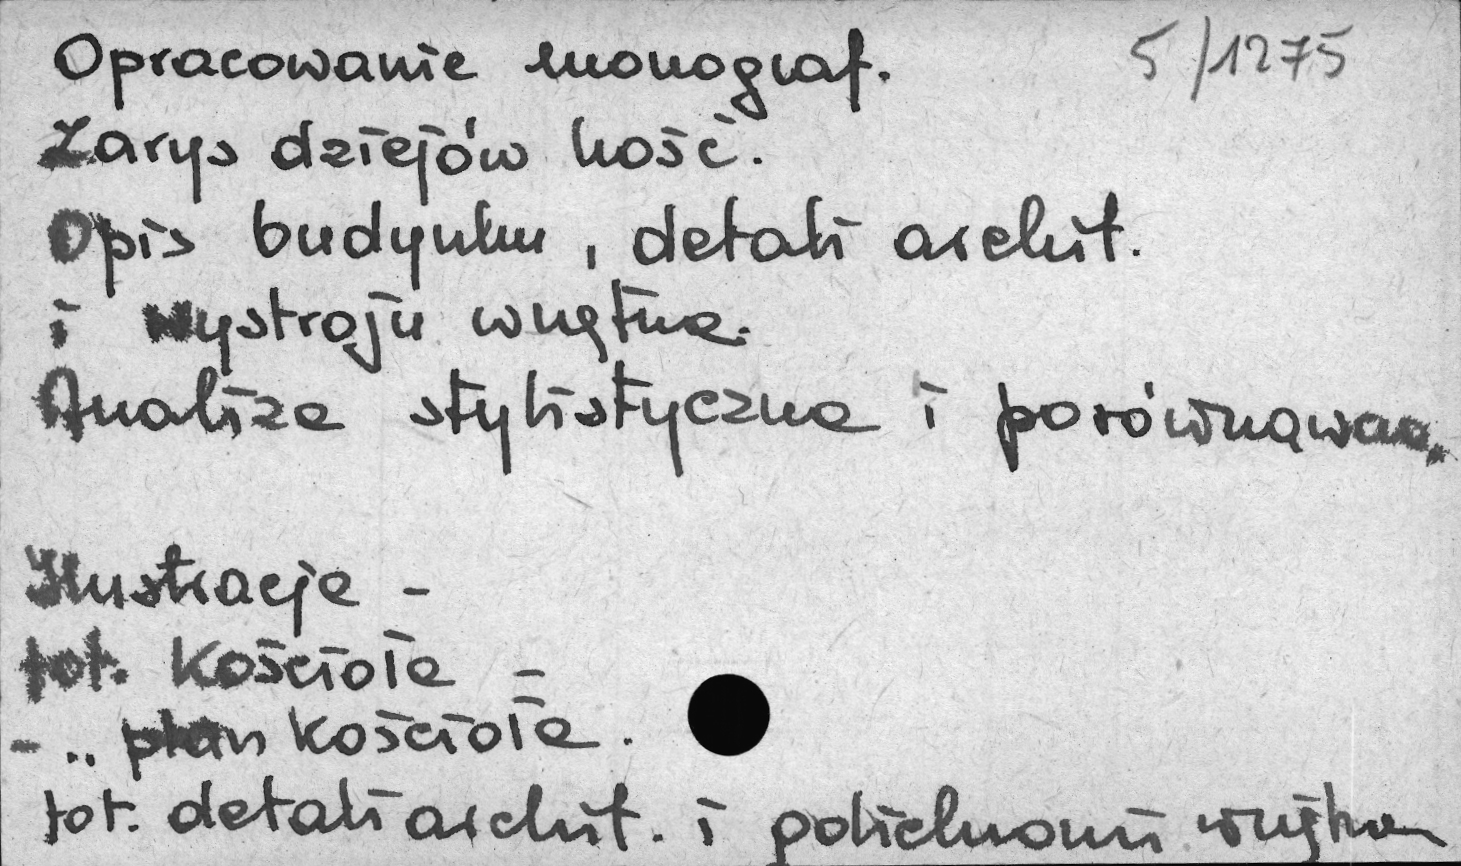 Opracowanie monograf. 5/1275
Zarys dziejów kość.
Opis budynku, detali archit.
i wystroju wnętrza.
Analiza stylistyczna i porównawcza.
Ilustracje -
fot. kościoła -
- .. plan kościoła.
fot. detali archit. i polichromii wnętrza